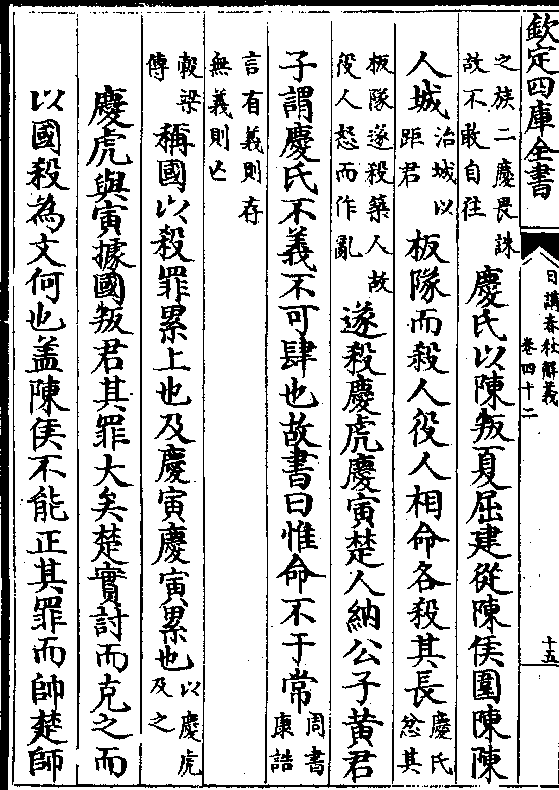 欽定四庫全書
日講春秋解義
卷四十二
十五
之族二慶畏誅
故不敢自往
慶氏以陳叛夏屈建從陳侯圍陳陳
人城
治城以
距君
板隊而殺人役人相命各殺其長
慶氏
忿其
板隊遂殺築人故
役人怒而作亂
遂殺慶虎慶寅楚人納公子黃君
子謂慶氏不義不可肆也故書曰惟命不于常
周書
康誥
言有義則存
無義則亡
穀梁
傳
稱國以殺罪累上也及慶寅慶寅累也
以慶虎
及之
慶虎與寅據國叛君其罪大矣楚實討而克之而
以國殺為文何也盖陳侯不能正其罪而帥楚師